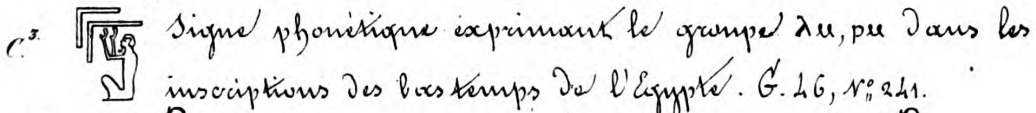 C³. Signe phonétique exprimant le groupe λιι, ριι dans les
inscriptions des bas temps de l'Egypte. G. 46, Nº 241.